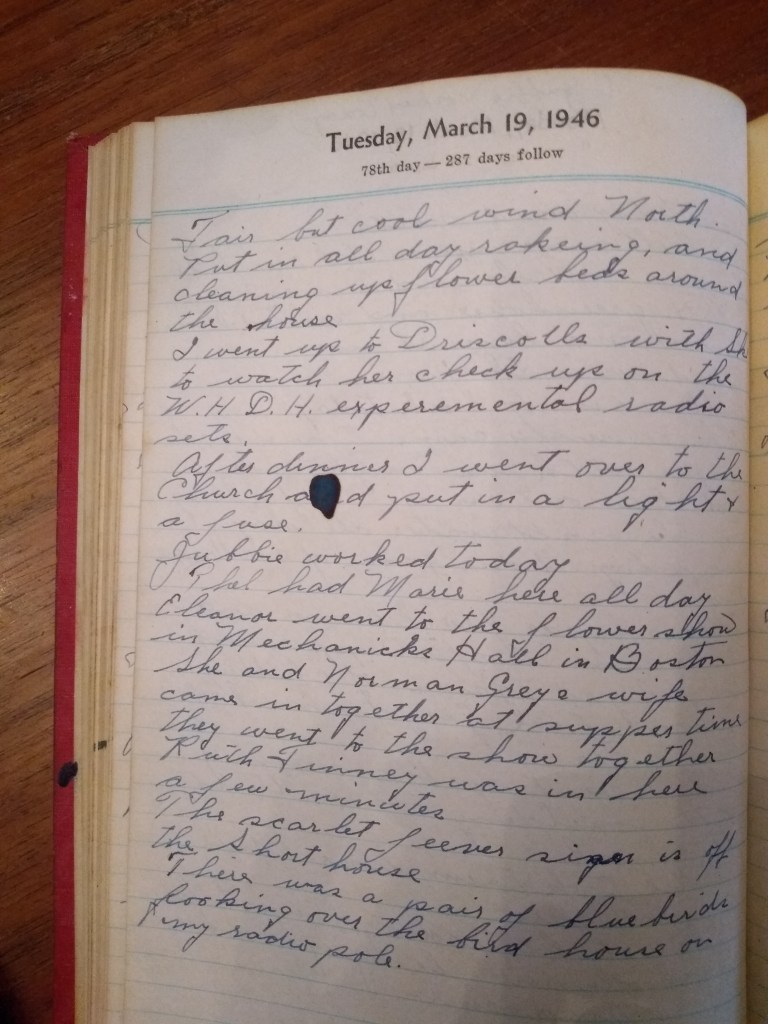 Tuesday, March 19, 1946
78th day — 287 days follow
Fair but cool wind North.
Put in all day rakeing, and
cleaning up flower beds around
the house
I went up to Driscolls with
to watch her check up on the
W.H.D.H. experemental radio
sets.
After dinner I went over to the
Church and put in a light &
a fuse.
Jubbie worked today
Phel had Marie here all day
Eleanor went to the flower show
in Mechanicks Hall in Boston
She and Norman Greye wife
came in together at supper time
they went to the show together
Ruth Finney was in here
a few minutes
The scarlet feever sign is off
the Short house
There was a pair of blue birds
looking over the bird house on
my radio pole.